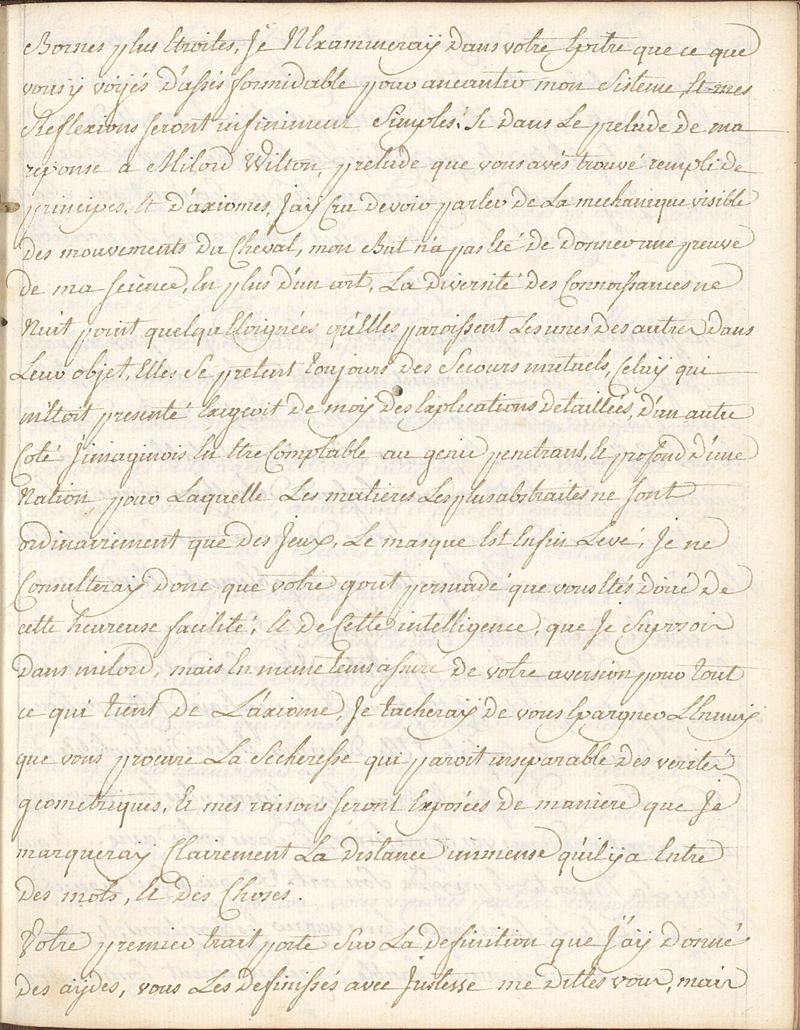 Bornes plus Etroites, Je N'Examineraÿ Dans votre Epitre que ce que
vous ÿ voÿés D'assés formidable pour aneantir mon Sisteme, Et mes
Reflexions seront infiniment Simples. Si dans Le prelude de ma
reponse a Milord Wilton, prelude que vous avés trouvé rempli de
principes, Et D'axiomes, J'aÿ Cru Devoir parler de La mechanique visible
Des mouvements Du Cheval, mon But n'a pas Eté de Donner une preuve
De ma science, En plus D'un art, La Diversité Des Connoissances ne
Nuit point quelqu'Eloignées qu'Elles paroissent Les unes Des autres Dans
Leur objet, Elles Se pretent toujours Des Secours mutuels, Celuÿ qui
m'Etoit presenté Exigeoit De moÿ Des Explications Detaillées, D'un autre
Coté J'imaginois En Etre Comptable au genie penetrant, Et profond D'une
Nation pour Laquelle Les matieres Les plus abstraites ne sont
ordinairement que Des Jeux, Le masque Est Enfin Levé, Je ne
Consulteraÿ Donc que votre gout persuadé que vous Etés Doué De
cette heureuse facilité, Et De Cette intelligence, que Je Supposois
Dans milord, mais En meme tems assuré De votre aversion pour tout
ce qui tient De L'axiome, Je tacheraÿ De vous Epargner L'Ennuÿ
que vous procure La Secheresse qui paroit inseparable Des verités
geometriques, Et mes raisons seront Exposées De maniere que Je
marqueraÿ Clairement La Distance immense qu'il ÿ a Entre
Des mots, Et Des Choses.
Votre premier trait porte Sur La Definition que J'aÿ Donné
Des aÿdes, vous Les Definissés avec Justesse me Dittes vous, mais